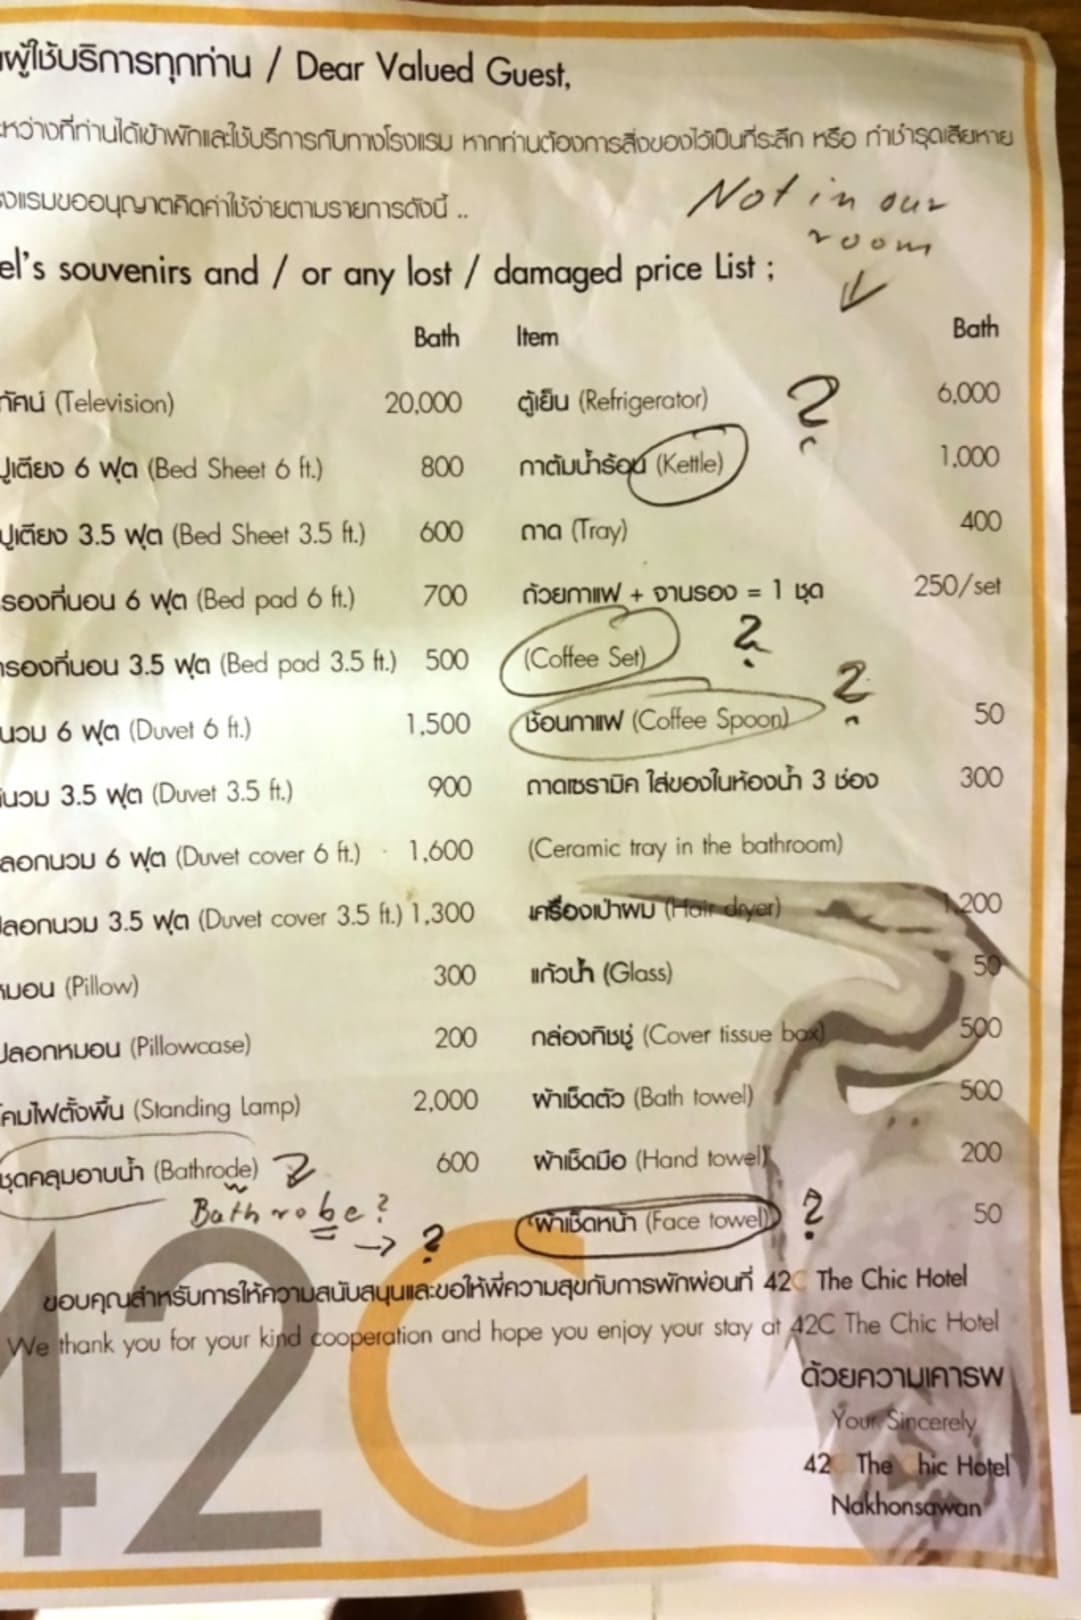 ผู้ใช้บริการทุกท่าน / Dear Valued Guest,
หว่างที่ท่านได้เข้าพักและใช้บริการกับทางโรงแรม หากท่านต้องการสิ่งของไว้เป็นที่ระลึก หรือ ทำชำรุดเสียหาย
งแรมขออนุญาตคิดค่าใช้จ่ายตามรายการดังนี้ ..
Not in our
room
el's souvenirs and / or any lost / damaged price List ;
Bath Item Bath
ทัศน์ (Television) 20,000 ตู้เย็น (Refrigerator) ? 6,000
ปูเตียง 6 ฟุต (Bed Sheet 6 ft.) 800 กาต้มน้ำร้อน (Kettle) 1,000
ปูเตียง 3.5 ฟุต (Bed Sheet 3.5 ft.) 600 ถาด (Tray) 400
รองที่นอน 6 ฟุต (Bed pad 6 ft.) 700 ถ้วยกาแฟ + จานรอง = 1 ชุด 250/set
รองที่นอน 3.5 ฟุต (Bed pad 3.5 ft.) 500 (Coffee Set) ?
นวม 6 ฟุต (Duvet 6 ft.) 1,500 ช้อนกาแฟ (Coffee Spoon) ? 50
นวม 3.5 ฟุต (Duvet 3.5 ft.) 900 ถาดเซรามิค ใส่ของในห้องน้ำ 3 ช่อง 300
ลอกนวม 6 ฟุต (Duvet cover 6 ft.) 1,600 (Ceramic tray in the bathroom)
ปลอกนวม 3.5 ฟุต (Duvet cover 3.5 ft.) 1,300 เครื่องเป่าผม (Hair dryer) 1,200
หมอน (Pillow) 300 แก้วน้ำ (Glass) 50
ปลอกหมอน (Pillowcase) 200 กล่องทิชชู่ (Cover tissue box) 500
โคมไฟตั้งพื้น (Standing Lamp) 2,000 ผ้าเช็ดตัว (Bath towel) 500
ชุดคลุมอาบน้ำ (Bathrode) ? 600 ผ้าเช็ดมือ (Hand towel) 200
Bathrobe? → ? ผ้าเช็ดหน้า (Face towel) ? 50
ขอบคุณสำหรับการให้ความสนับสนุนและขอให้พี่ความสุขกับการพักผ่อนที่ 42C The Chic Hotel
We thank you for your kind cooperation and hope you enjoy your stay at 42C The Chic Hotel
ด้วยความเคารพ
Your Sincerely
42C The Chic Hotel
Nakhonsawan
42C